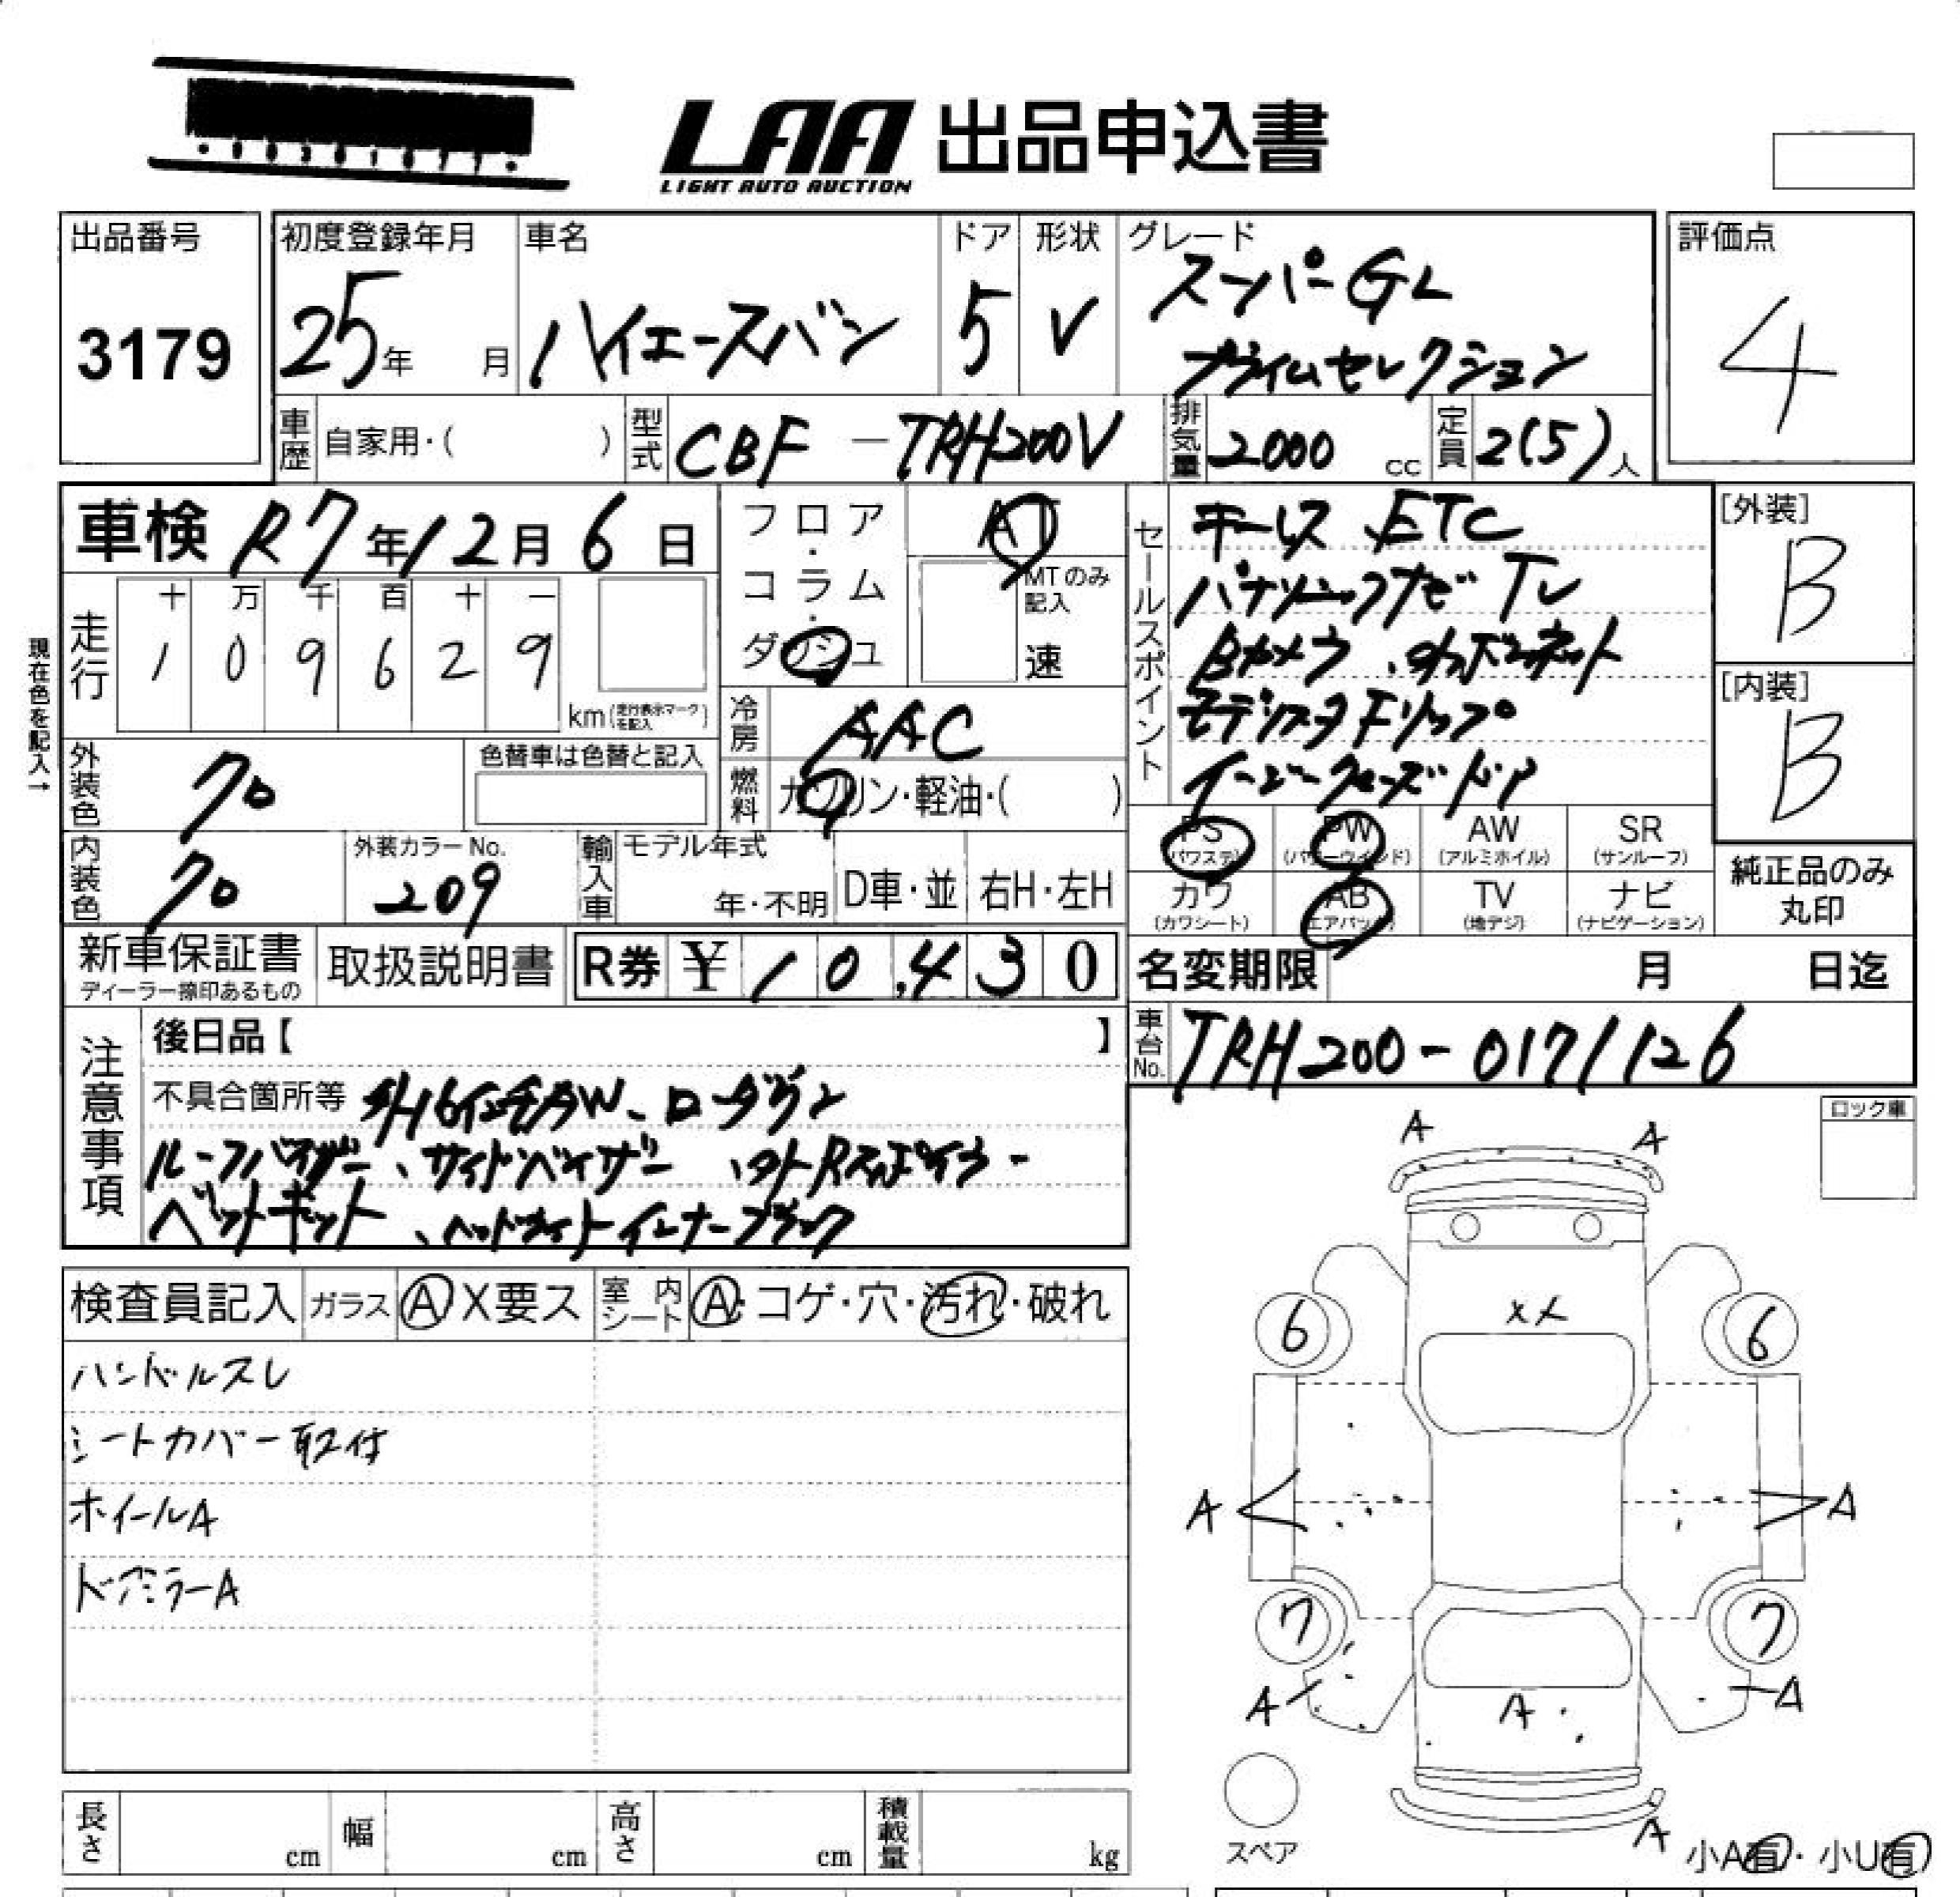 LAA 出品申込書
LIGHT AUTO AUCTION
出品番号
3179
初度登録年月
25年 月
車名
ハイエースバン
ドア
5
形状
V
グレード
スーパーGL
プライムセレクション
評価点
4
車歴 自家用・( )
型式 CBF-TRH200V
排気量 2000 cc
定員 2(5)人
車検 R7年12月6日
現在色を記入→
走行
十 万 千 百 十 一
1 0 9 6 2 9
km(走行表示マークを記入)
フロア・コラム・ダッシュ
AT
MTのみ記入
速
冷房 AAC
燃料 ガソリン・軽油・( )
外装色 クロ
色替車は色替と記入
内装色 クロ
外装カラーNo.
209
輸入車
モデル年式
年・不明
D車・並
右H・左H
セールスポイント
キーレス ETC
パナソニックナビ TV
Bカメラ
モデリスタFリップ
イージークローズドドア
[外装]
B
[内装]
B
PS (パワステ)
PW (パワーウインド)
AW (アルミホイル)
SR (サンルーフ)
カワ (カワシート)
AB (エアバック)
TV (地デジ)
ナビ (ナビゲーション)
純正品のみ
丸印
新車保証書
ディーラー捺印あるもの
取扱説明書
R券 ¥10,430
名変期限 月 日迄
車台No. TRH200-0171126
注意事項
後日品【 】
不具合箇所等 AW、ローダウン
ルーフバイザー、サイドバイザー、Rスポイラー
ベットキット、ヘッドライトインナーブラック
ロック車
検査員記入
ガラス A X要ス
室内シート A・コゲ・穴・汚れ・破れ
ハンドルスレ
シートカバー取付
ホイールA
ドアミラーA
A A
XX
6 6
A A
7 7
A A A
A
スペア
小A有・小U有
長さ cm
幅 cm
高さ cm
積載量 kg